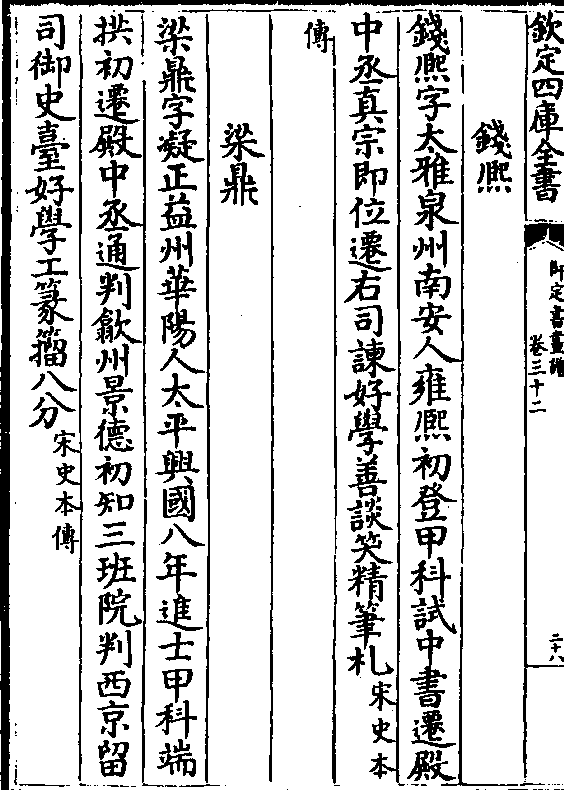 欽定四庫全書
御定書畫譜
卷三十二
二十八
錢熈
錢熈字太雅泉州南安人雍熈初登甲科試中書遷殿
中丞真宗即位遷右司諫好學善談笑精筆札宋史本
傳
梁鼎
梁鼎字凝正益州華陽人太平興國八年進士甲科端
拱初遷殿中丞通判歙州景德初知三班院判西京留
司御史臺好學工篆籀八分宋史本傳